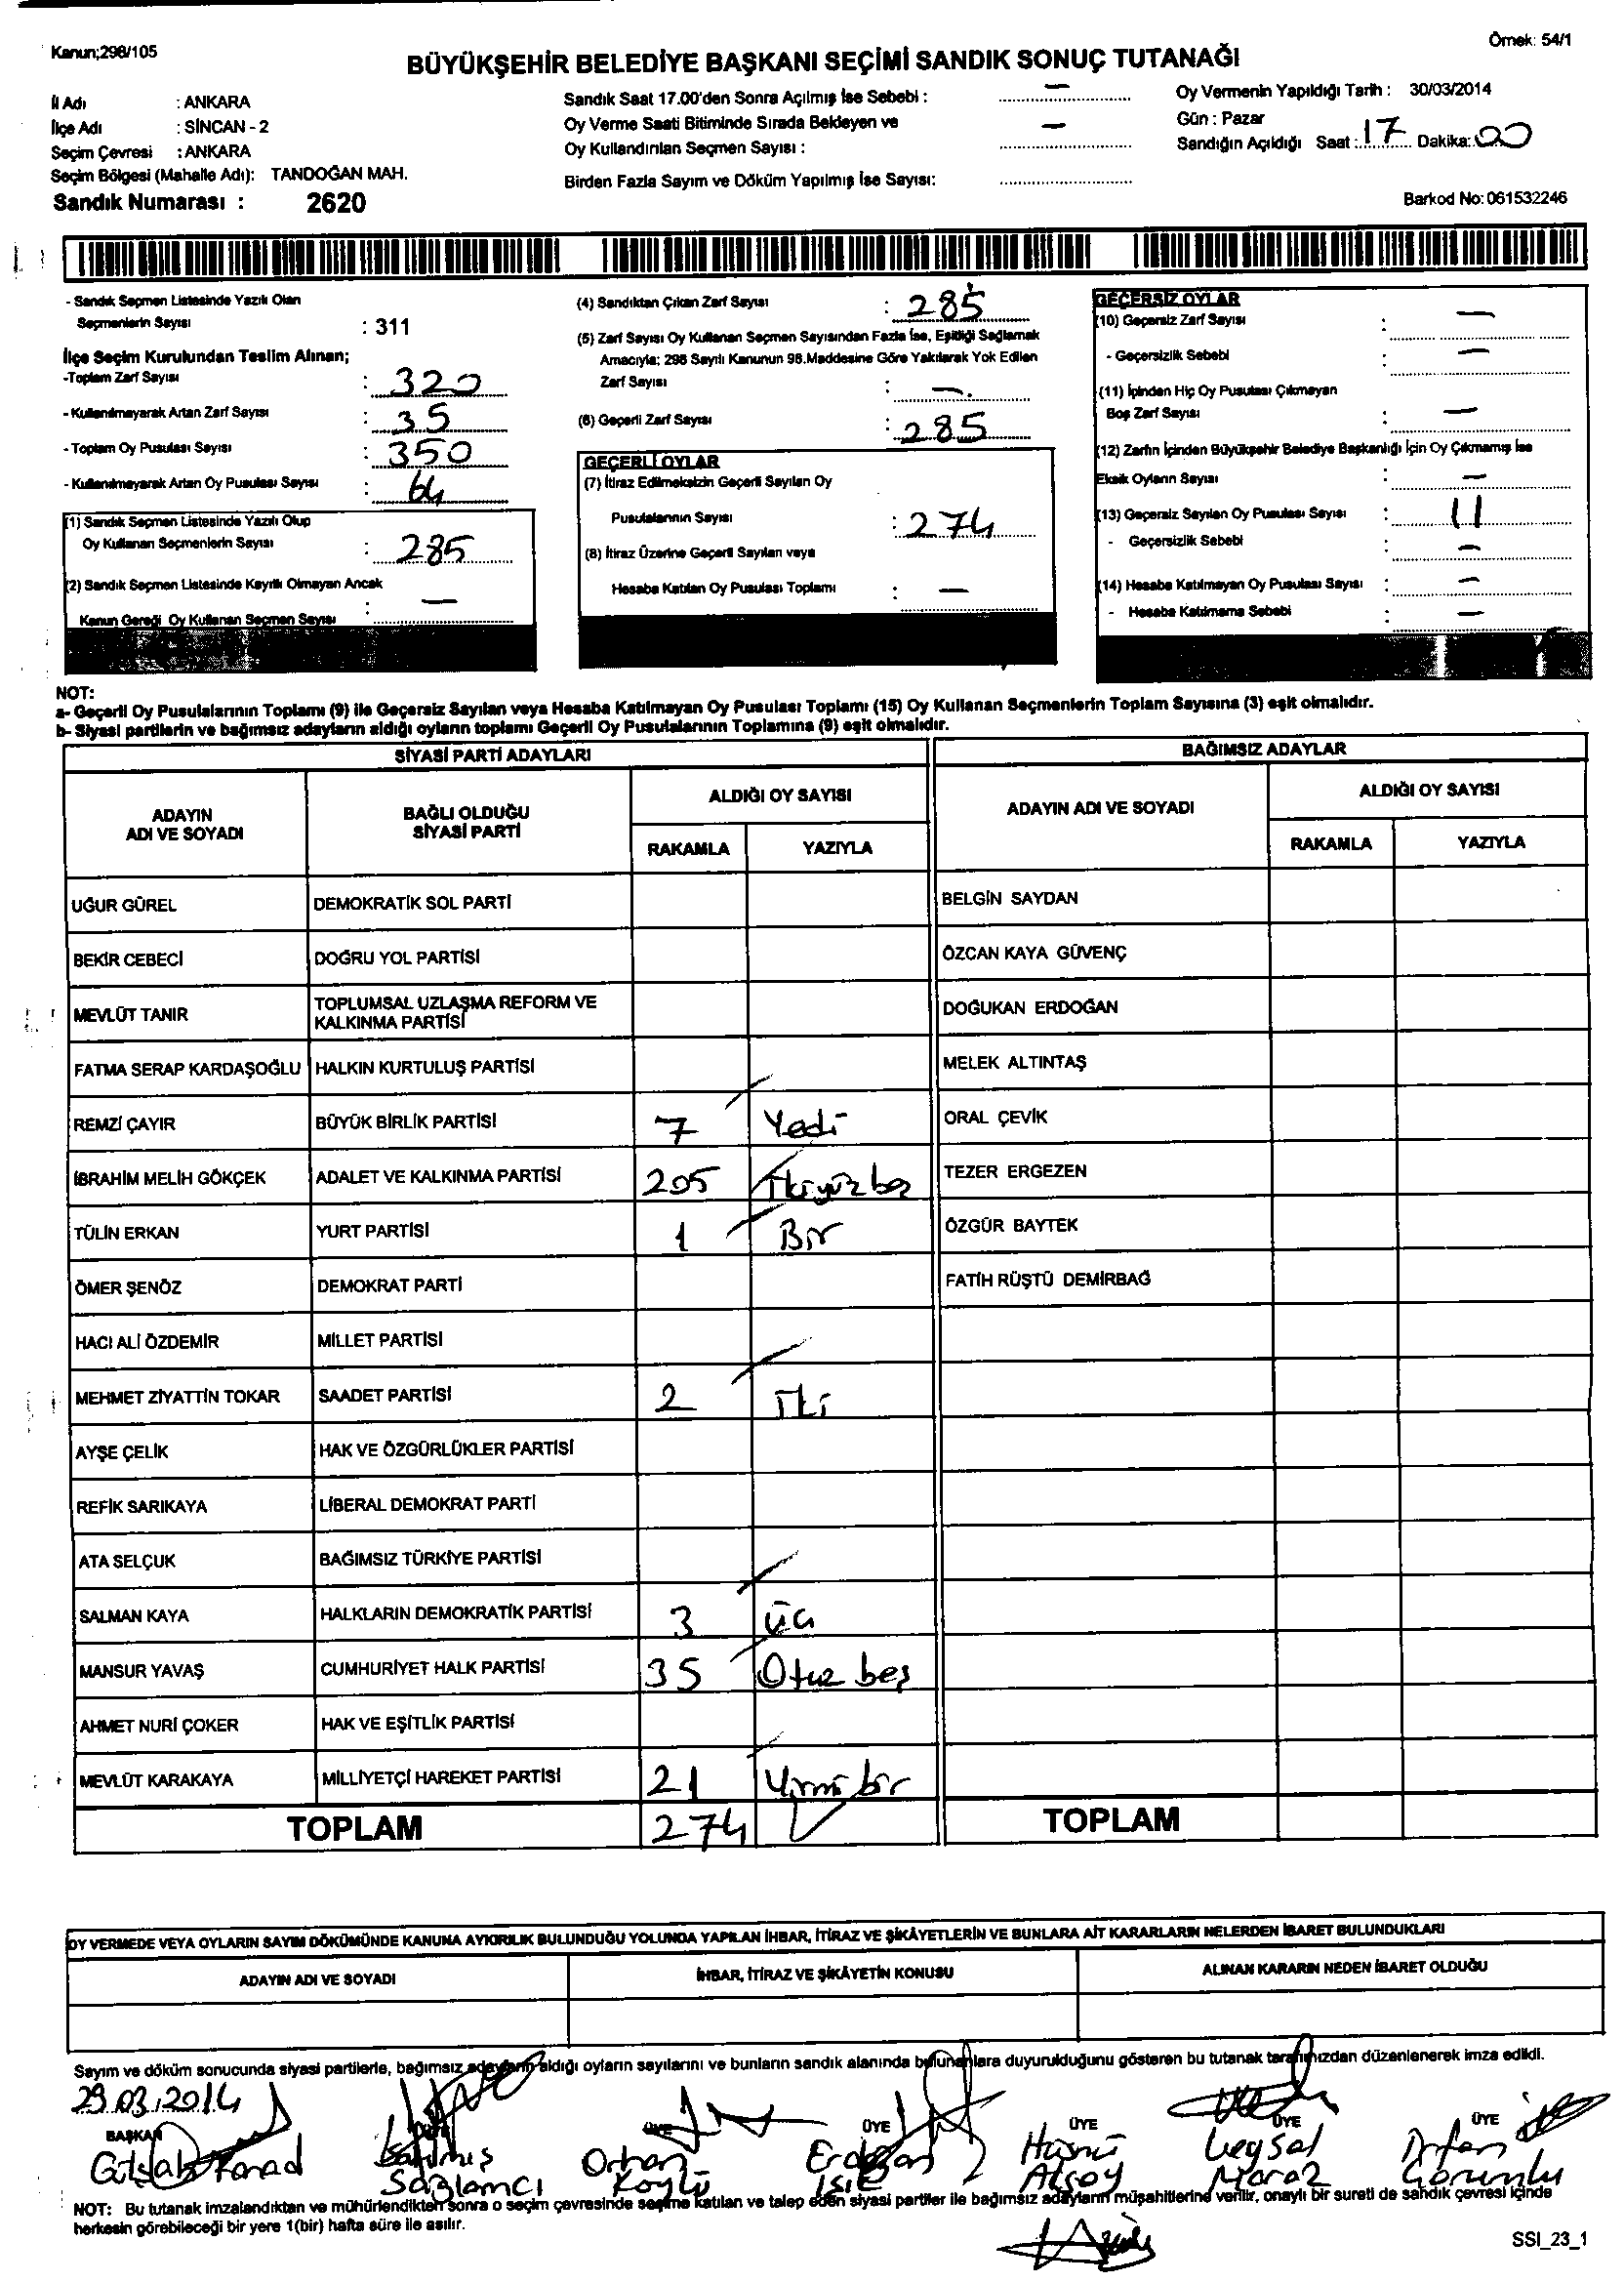 Kanun;298/105
Örnek: 54/1
BÜYÜKŞEHİR BELEDİYE BAŞKANI SEÇİMİ SANDIK SONUÇ TUTANAĞI
İl Adı : ANKARA
İlçe Adı : SİNCAN - 2
Seçim Çevresi : ANKARA
Seçim Bölgesi (Mahalle Adı): TANDOĞAN MAH.
Sandık Numarası : 2620
Sandık Saat 17.00'den Sonra Açılmış İse Sebebi : —
Oy Verme Saati Bitiminde Sırada Bekleyen ve —
Oy Kullandırılan Seçmen Sayısı :
Birden Fazla Sayım ve Döküm Yapılmış İse Sayısı:
Oy Vermenin Yapıldığı Tarih : 30/03/2014
Gün : Pazar
Sandığın Açıldığı Saat : 17 Dakika: 00
Barkod No: 061532246
- Sandık Seçmen Listesinde Yazılı Olan
Seçmenlerin Sayısı : 311
İlçe Seçim Kurulundan Teslim Alınan;
-Toplam Zarf Sayısı : 320
- Kullanılmayarak Artan Zarf Sayısı : 35
- Toplam Oy Pusulası Sayısı : 350
- Kullanılmayarak Artan Oy Pusulası Sayısı : 64
(1) Sandık Seçmen Listesinde Yazılı Olup
Oy Kullanan Seçmenlerin Sayısı : 285
(2) Sandık Seçmen Listesinde Kayıtlı Olmayan Ancak
Kanun Gereği Oy Kullanan Seçmen Sayısı : —
(4) Sandıktan Çıkan Zarf Sayısı : 285
(5) Zarf Sayısı Oy Kullanan Seçmen Sayısından Fazla İse, Eşitliği Sağlamak
Amacıyla; 298 Sayılı Kanunun 98.Maddesine Göre Yakılarak Yok Edilen
Zarf Sayısı : —
(6) Geçerli Zarf Sayısı : 285
GEÇERLİ OYLAR
(7) İtiraz Edilmeksizin Geçerli Sayılan Oy
Pusulalarının Sayısı : 274
(8) İtiraz Üzerine Geçerli Sayılan veya
Hesaba Katılan Oy Pusulası Toplamı : —
GEÇERSİZ OYLAR
(10) Geçersiz Zarf Sayısı : —
- Geçersizlik Sebebi : —
(11) İçinden Hiç Oy Pusulası Çıkmayan
Boş Zarf Sayısı : —
(12) Zarfın İçinden Büyükşehir Belediye Başkanlığı İçin Oy Çıkmamış İse
Eksik Oyların Sayısı : —
(13) Geçersiz Sayılan Oy Pusulası Sayısı : 11
- Geçersizlik Sebebi : —
(14) Hesaba Katılmayan Oy Pusulası Sayısı : —
- Hesaba Katılmama Sebebi : —
NOT:
a- Geçerli Oy Pusulalarının Toplamı (9) ile Geçersiz Sayılan veya Hesaba Katılmayan Oy Pusulası Toplamı (15) Oy Kullanan Seçmenlerin Toplam Sayısına (3) eşit olmalıdır.
b- Siyasi partilerin ve bağımsız adayların aldığı oyların toplamı Geçerli Oy Pusulalarının Toplamına (9) eşit olmalıdır.
SİYASİ PARTİ ADAYLARI
ADAYIN ADI VE SOYADI
BAĞLI OLDUĞU SİYASİ PARTİ
ALDIĞI OY SAYISI
RAKAMLA YAZIYLA
UĞUR GÜREL DEMOKRATİK SOL PARTİ
BEKİR CEBECİ DOĞRU YOL PARTİSİ
MEVLÜT TANIR TOPLUMSAL UZLAŞMA REFORM VE
KALKINMA PARTİSİ
FATMA SERAP KARDAŞOĞLU HALKIN KURTULUŞ PARTİSİ
REMZİ ÇAYIR BÜYÜK BİRLİK PARTİSİ 7 Yedi
İBRAHİM MELİH GÖKÇEK ADALET VE KALKINMA PARTİSİ 205 İkiyüz beş
TÜLİN ERKAN YURT PARTİSİ 1 Bir
ÖMER ŞENÖZ DEMOKRAT PARTİ
HACI ALİ ÖZDEMİR MİLLET PARTİSİ
MEHMET ZİYATTİN TOKAR SAADET PARTİSİ 2 İki
AYŞE ÇELİK HAK VE ÖZGÜRLÜKLER PARTİSİ
REFİK SARIKAYA LİBERAL DEMOKRAT PARTİ
ATA SELÇUK BAĞIMSIZ TÜRKİYE PARTİSİ
SALMAN KAYA HALKLARIN DEMOKRATİK PARTİSİ 3 Üç
MANSUR YAVAŞ CUMHURİYET HALK PARTİSİ 35 Otuz beş
AHMET NURİ ÇOKER HAK VE EŞİTLİK PARTİSİ
MEVLÜT KARAKAYA MİLLİYETÇİ HAREKET PARTİSİ 21 Yirmi bir
TOPLAM 274
BAĞIMSIZ ADAYLAR
ADAYIN ADI VE SOYADI
ALDIĞI OY SAYISI
RAKAMLA YAZIYLA
BELGİN SAYDAN
ÖZCAN KAYA GÜVENÇ
DOĞUKAN ERDOĞAN
MELEK ALTINTAŞ
ORAL ÇEVİK
TEZER ERGEZEN
ÖZGÜR BAYTEK
FATİH RÜŞTÜ DEMİRBAĞ
TOPLAM
OY VERMEDE VEYA OYLARIN SAYIM DÖKÜMÜNDE KANUNA AYKIRILIK BULUNDUĞU YOLUNDA YAPILAN İHBAR, İTİRAZ VE ŞİKÂYETLERİN VE BUNLARA AİT KARARLARIN NELERDEN İBARET BULUNDUKLARI
ADAYIN ADI VE SOYADI İHBAR, İTİRAZ VE ŞİKÂYETİN KONUSU ALINAN KARARIN NEDEN İBARET OLDUĞU
Sayım ve döküm sonucunda siyasi partilerle, bağımsız adayların aldığı oyların sayılarını ve bunların sandık alanında bulunanlara duyurulduğunu gösteren bu tutanak tarafımızdan düzenlenerek imza edildi.
29.03.2014
BAŞKAN ÜYE ÜYE ÜYE ÜYE ÜYE
Orhan Erdoğan Hüsnü Veysal
Sağlamcı Köylü Işık Aksoy Maraz Görünlu
NOT: Bu tutanak imzalandıktan ve mühürlendikten sonra o seçim çevresinde seçime katılan ve talep eden siyasi partiler ile bağımsız adayların müşahitlerine verilir, onaylı bir sureti de sandık çevresi içinde
herkesin görebileceği bir yere 1(bir) hafta süre ile asılır.
SSI_23_1